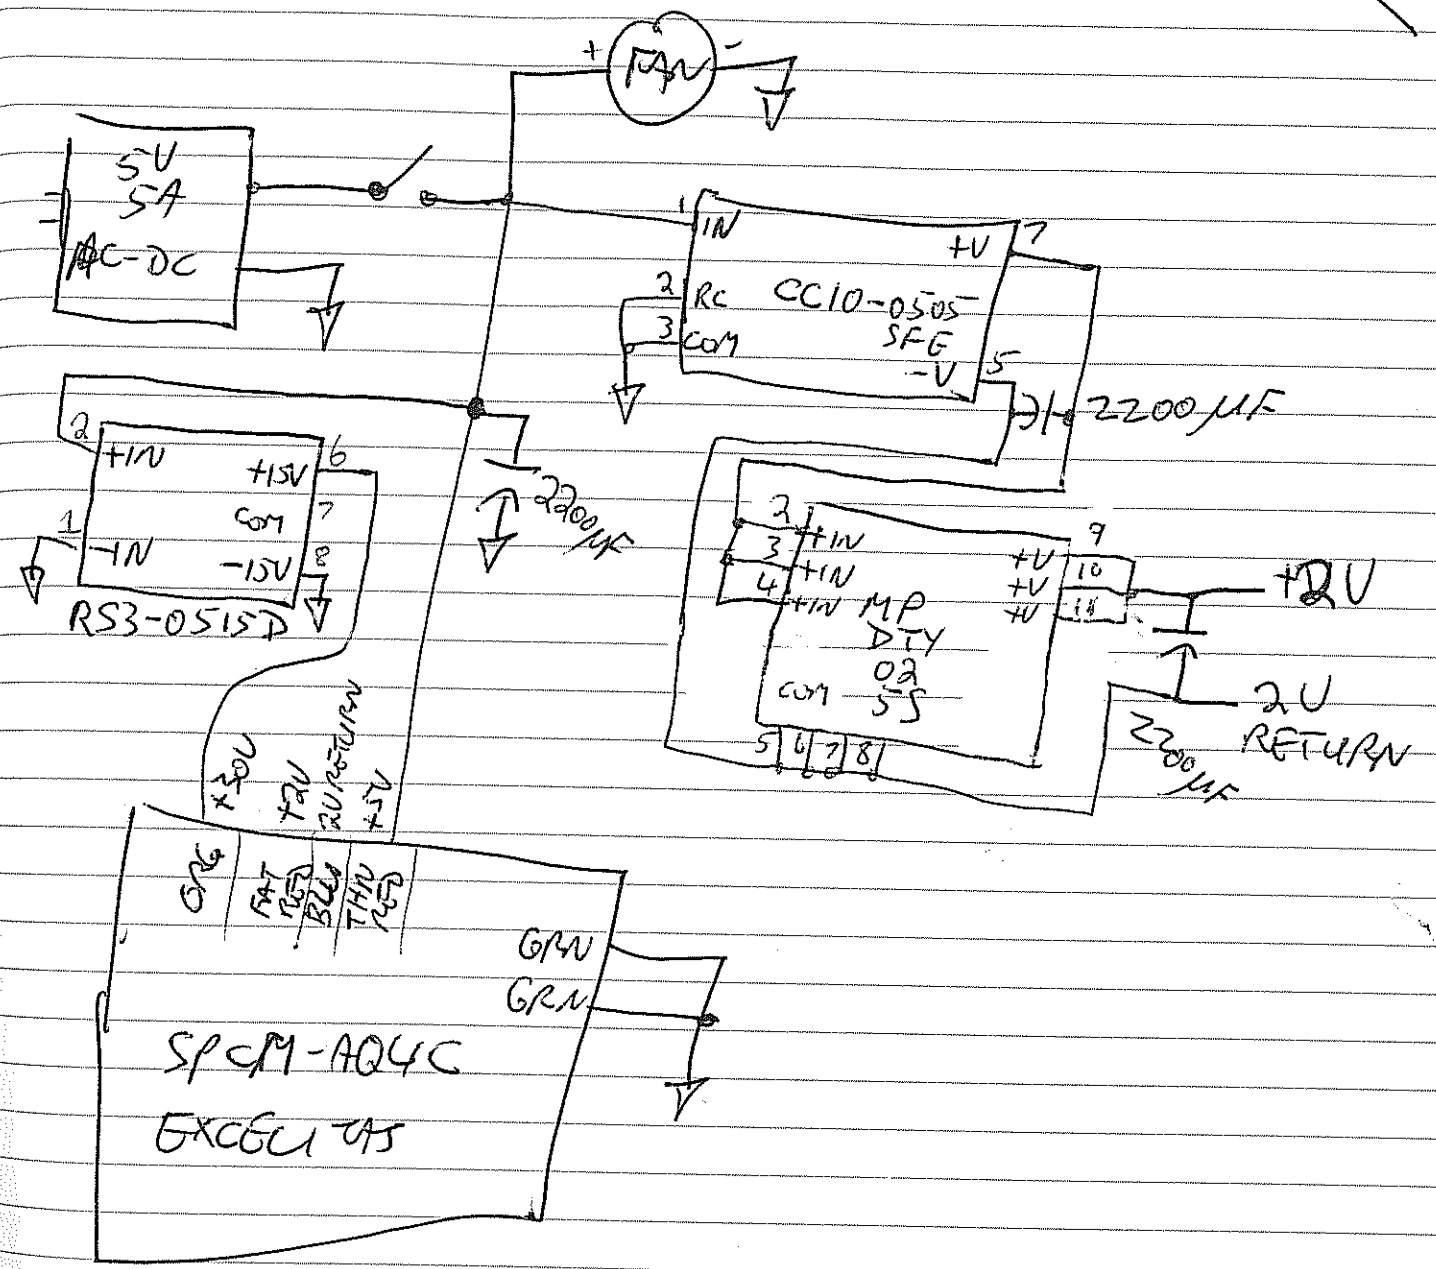 + FAN -
5V
5A
AC-DC
1 IN
+V 7
2 RC
CC10-0505
SFE
3 COM
-V 5
2200µF
2 +IN
+15V 6
COM 7
1 -IN
-15V 8
RS3-0515D
2200µF
2 +IN
3 +IN
4 +IN
+V 9
+V 10
+V 11
MP
DTY
02
5S
COM
5 6 7 8
+2V
2V
RETURN
2200µF
+30V
+2V
2V RETURN
+5V
ORG
FAT
RED
BLU
THN
RED
GRN
GRN
SPCM-AQ4C
EXCELITAS